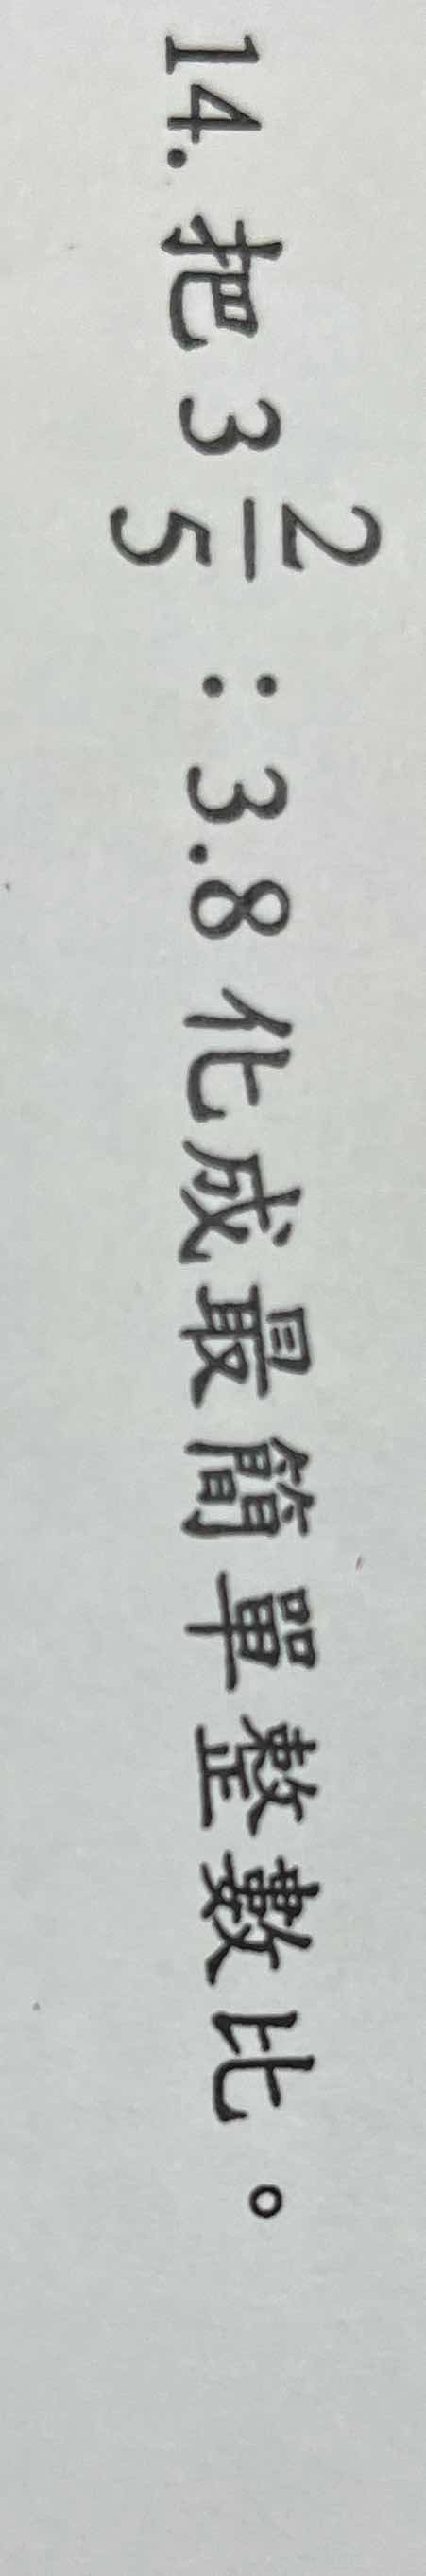 14. 把 3 2/5 : 3.8 化成最簡單整數比。